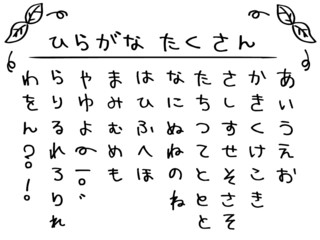 ひらがな たくさん
あいうえお
かきくけこき
さしすせそさそ
たちつてととと
なにぬねのね
はひふへほ
まみむめも
やゆよ〜ー。゛
らりるれろりれ
わをん?!